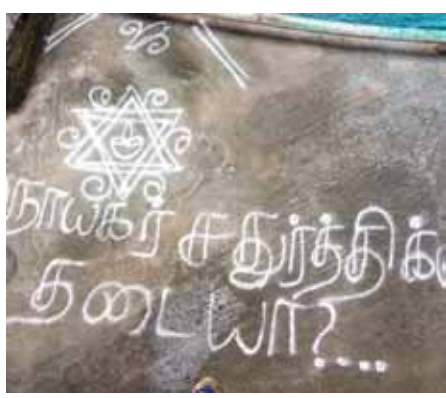 உ
நாயகர் சதுர்த்திக்கு
தடையா?....